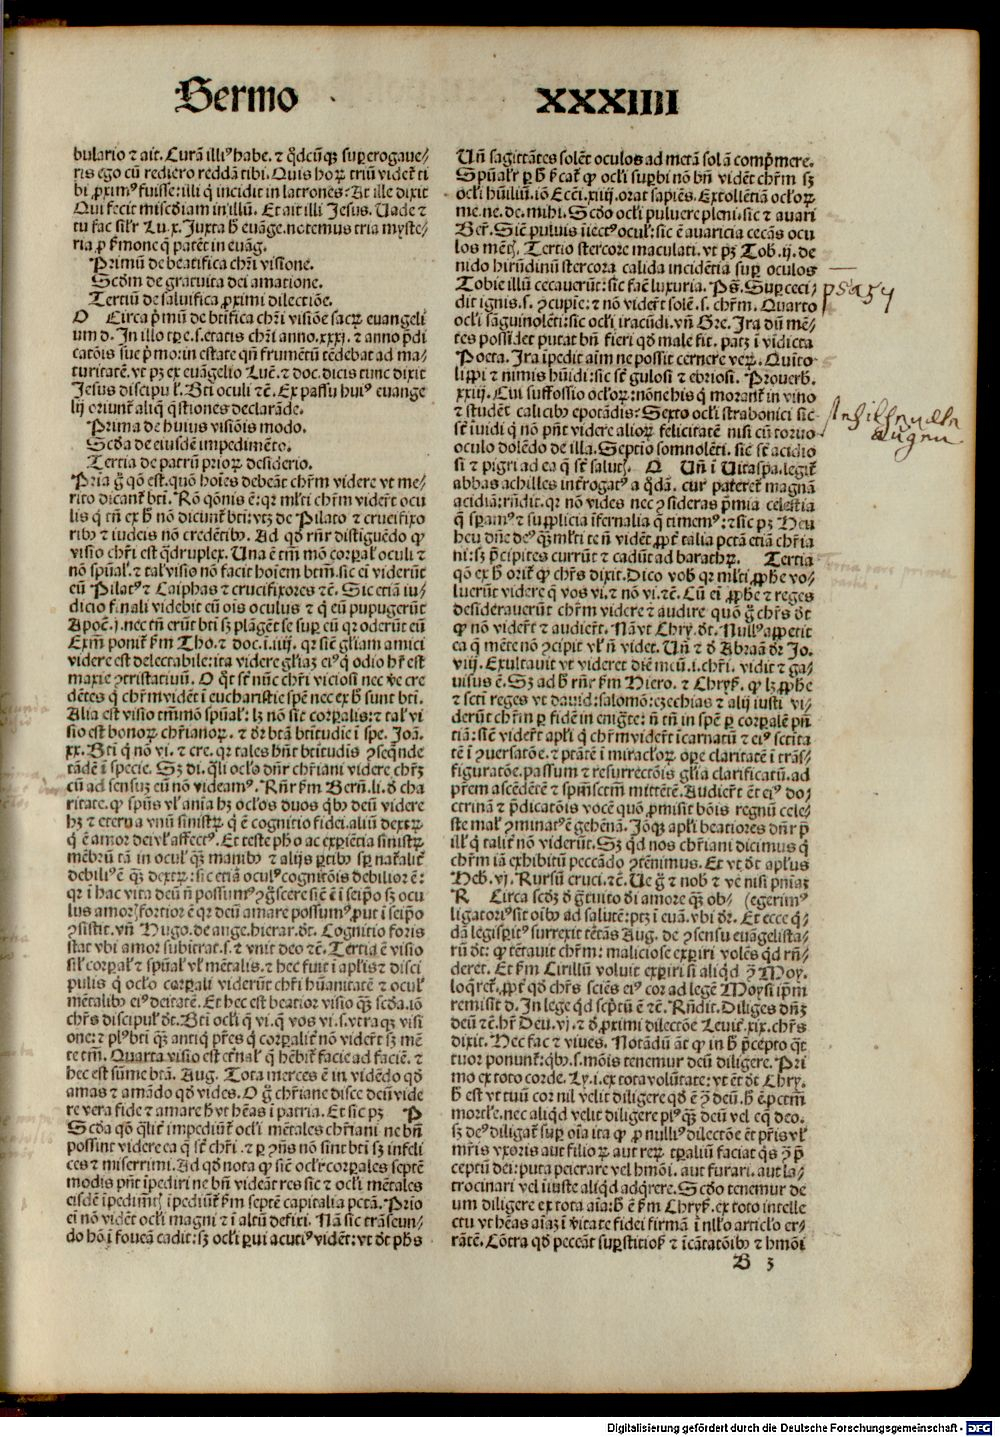 Sermo XXXIIII
bulario ⁊ ait. Curã illiꝰ habe. ⁊ q̃dcũqꝫ suꝑerogaue⸗
ris ego cũ rediero reddã tibi. Quis hoꝝ triũ videt̃ ti
bi ꝓximꝰ fuisse: illi q̃ incidit in latrones. At ille dixit
Qui fecit mis̃cdiam in illũ. Et ait illi Jesus. Uade ⁊
tu fac sil̃r Lu.x. Juxta h̃ euãge. notemus tria myste⸗
ria ꝓ sermone q̃ patẽt in euãg.
Primũ de beatifica chr̃i visione.
Scd̃m de gratuita dei amatione.
Tertiũ de saluifica ꝓximi dilectiõe.
O Circa p̃mũ de btĩfica chr̃i visiõe sacꝝ euangeli
um d. In illo tp̃e.s.etatis chr̃i anno.xxxi. ⁊ anno p̃di
catõis sue p̃mo: in estate qñ frumẽtũ tẽdebat ad ma⸗
turitatẽ. vt pꝫ ex euãgelio Luc̃. ⁊ doc. dicis tunc dixit
Jesus discipul̃. Bt̃i oculi ⁊c̃. Ex passu huiꝰ euange
lij oriunt̃ aliq̃ q̃stiones declarãde.
Prima de huius visiõis modo.
Scd̃a de eiusdẽ impedimẽto.
Tertia de patrũ prioꝝ desiderio.
Pria g̃ qõ est. quõ hoĩes debeãt chr̃m videre vt me⸗
rito dicant̃ bt̃i. Rõ qõnis ẽ: qr ml̃ti chr̃m vidert̃ ocu
lis q̃ tñ ex h̃ nõ dicunt̃ bt̃i: vtꝫ de Pilato ⁊ crucifixo
ribꝰ ⁊ iudeis nõ credẽtibꝰ. Ad qõ rñr distiguẽdo ꝙ
visio chr̃i est q̃druplex. Una ẽ tm̃ mõ corꝑal̃ oculi ⁊
nõ spũal̃. ⁊ tal̃ visio nõ facit hoĩem btm̃. sic ei viderũt
eũ Pilatꝰ ⁊ Caiphas ⁊ crucifixores ⁊c̃. Sic etiã iu⸗
dicio finali videbit eũ ois oculus ⁊ q̃ eũ pupugerũt
Apoc̃.j. nec tñ erũt bt̃i sꝫ plãgẽt se suꝑ eũ qr oderũt eũ
Exm̃ ponit̃ fm̃ Tho.⁊ doc.i.iiij. qr sic̃ gl̃iam amici
videre est delectabile: ita videre gl̃iaꝫ eiꝰ q̃ odio hr̃ est
maxie ꝯtristatiuũ. O q̃t st̃ nũc chr̃i viciosi nec ve cre
dẽtes q̃ chr̃m vidẽt i eucharistie spẽ nec ex h̃ sunt bt̃i.
Alia est visio tm̃mõ spũal̃: lꝫ nõ sic corꝑalis: ⁊ tal̃ vi
sio est bonoꝝ chr̃ianoꝝ. ⁊ d̃r btã btĩtudie i spe. Joã.
xx. Bt̃i q̃ nõ vi. ⁊ cre. qr tales hñt btĩtudis ꝯseq̃nde
tãdẽ i specie. Sꝫ di. q̃li oclõ dñr chr̃iani videre chr̃ꝫ
cũ ad sensuꝫ eũ nõ videamꝰ. Rñr fm̃ Bern̄. li. d̃ cha
ritate. ꝙ spũs vl̃ anĩa hꝫ ocl̃os duos q̃bꝰ deũ videre
hꝫ ⁊ eterna vnũ sinistꝝ q̃ ẽ cognitio fidei. aliũ dextꝝ
q̃ ẽ amor dei vl̃ affectꝰ. Et teste ph̃o ac exꝑiẽtia sinistꝝ
mẽbrũ tã in ocul̃ qꝫ manibꝰ ⁊ alijs ꝑtibꝰ sꝑ nat̃alit̃
debiliꝰ ẽ qꝫ dextꝝ: sic etiã oculꝰ cognitõis debilior ẽ:
qr i hac vita deũ ñ possumꝰ ꝯg̃scere sic̃ ẽ i seip̃o sꝫ ocu
lus amorꝭ fortior ẽ qr deũ amare possumꝰ, put i seip̃o
ꝯsistit. vñ Hugo. de ange. hierar. dt̃. Cognitio foris
stat vbi amor subitrat.s.⁊ vnit deo ⁊c̃. Tertia ẽ visio
sil̃ corꝑal̃ ⁊ spũal̃ vl̃ mẽtalis. ⁊ hec fuit i apl̃is ⁊ disci
pulis q̃ ocl̃o corꝑali viderũt chr̃i hũanitatẽ ⁊ ocul̃
mẽtalibꝰ eiꝰ deitatẽ. Et hec est beatior visio qꝫ scd̃a. iõ
chr̃s discipul̃ dt̃. Bt̃i ocl̃i q̃ vi. q̃ vos vi.s. vtraqꝫ visi
one: ⁊ plꝰ bt̃i qꝫ antiq̃ pr̃es q̃ corꝑalit̃ nõ vider̃t sꝫ mẽ
te tm̃. Quarta visio est etñal̃ q̃ hẽbit̃ facie ad faciẽ. ⁊
hec est sũme btã. Aug. Tota merces ẽ in vidẽdo qd̃
amas ⁊ amãdo qd̃ vides. O g̃ chr̃iane disce deũ vide
re vera fide ⁊ amare h̃ vt heãs i patria. Et sic pꝫ P
Scd̃a qõ q̃lit̃ impediũt̃ ocl̃i mẽtales chr̃iani ne bñ
possint videre ea q̃ st̃ chr̃i. ⁊ ꝑ ꝯñs nõ sint bt̃i sꝫ infeli
ces ⁊ miserrimi. Ad qd̃ nota ꝙ sic̃ ocl̃i corꝑales septẽ
modis pñt ipediri ne bñ videãt res sic ⁊ ocl̃i mẽtales
eisdẽ ipedimt̃ꝭ ipediũt̃ fm̃ septẽ capitalia pctã. Prio
ei nõ vidẽt ocl̃i magni ⁊ i altũ defixi. Nã sic trãseun⸗
do hõ i foueã cadit: sꝫ ocl̃i ꝑui acutiꝰ vidẽt: vt dt̃ ph̃s
Uñ sagittãtes solẽt oculos ad metã solã comp̃mere.
Spũalr̃ ꝑ h̃ fĩcat̃ ꝙ ocl̃i suꝑbi nõ bñ vidẽt chr̃m sꝫ
ocl̃i hũiliũ. iõ Ecc̃i.xiiij. orat sapiẽs. Extollẽtiã ocl̃oꝝ
me. ne. de. mihi. Scd̃o ocl̃i puluere pleni. sic ⁊ auari
Ber̃. Sic̃ puluis iiectꝰ ocul̃: sic ẽ auaricia cecãs ocu
los mẽtꝭ. Tertio stercore maculati. vt pꝫ Tob.ij. de
nido hirũdinũ stercora calida incidẽtia suꝑ oculos
Tobie illũ cecauerũt: sic faẽ luxuria. Ps̃. Suꝑ ceci⸗
dit ignis.s. ꝯcupie: ⁊ nõ vider̃t solẽ.s. chr̃m. Quarto
ocl̃i sãguinolẽti: sic ocl̃i iracũdi. vñ Gre. Ira dũ mẽ⸗
tes possidet putat bñ fieri qd̃ male fit. patꝫ i vidicta
Poeta. Ira ipedit aim ne possit cernere veꝝ. Quĩto
lippi ⁊ nimis hũidi: sic st̃ gulosi ⁊ ebriosi. Prouerb̃.
xxiij. Cui suffossio ocl̃oꝝ: nõne his q̃ morant̃ in vino
⁊ studẽt calicibꝰ epotãdis. Sexto ocl̃i strabonici sic
st̃ iuidi q̃ nõ pñt videre alioꝝ felicitatẽ nisi cũ toruo
oculo dolẽdo de illa. Septio somnolẽti. sic st̃ acidio
si ⁊ pigri ad ea q̃ st̃ salutꝭ. Q Uñ i Uitaspa. legit̃
abbas achilles int̃rogatꝰ a q̃dã. cur pateret̃ magnã
acidiã: rñdit. qr nõ vides nec ꝯsideras p̃mia celestia
q̃ sꝑamꝰ ⁊ supplicia ifernalia q̃ timemꝰ: ⁊ sic pꝫ Heu
heu dñe deꝰ qꝫ ml̃ti te ñ vidẽt ꝓpt̃ talia pctã etiã chr̃ia
ni: sꝫ p̃cipites currũt ⁊ cadũt ad barathꝝ. Tertia
qõ ex h̃ orit̃ ꝙ chr̃s dixit. Dico vob̃ qr ml̃ti ꝓph̃e vo⸗
luerũt videre q̃ vos vi.⁊ nõ vi.⁊c̃. Cũ ei ꝓph̃e ⁊ reges
desiderauerũt chr̃m videre ⁊ audire quõ g̃ chr̃s dt̃
ꝙ nõ vider̃t ⁊ audier̃t. Nã vt Chry. dt̃. Nullꝰ appetit
ea q̃ mẽte nõ ꝯcipit vl̃ ñ videt. Uñ ⁊ d̃ Abraã d̃r Jo.
viij. Exultauit vt videret diẽ meũ.i. chr̃i. vidit ⁊ ga⸗
uisus ẽ. Sꝫ ad h̃ rñr fm̃ Hiero. ⁊ Chryf̃. ꝙ lꝫ ꝓph̃e
⁊ scti reges vt dauid: salomõ: eꝫechias ⁊ alij iusti vi⸗
derũt chr̃m ꝑ fidẽ in enig̃te: ñ tñ in spẽ ꝑ corꝑalẽ pñ
tiã: sic̃ vider̃t apl̃i q̃ chr̃m vider̃t icarnatũ ⁊ eiꝰ sctita
tẽ i ꝯuersatõe. ⁊ ptãtẽ i miracl̃oꝝ oꝑe claritatẽ i trãs⸗
figuratõe. passum ⁊ resurrectõis gl̃ia clarificatũ. ad
pr̃em ascẽdẽtẽ ⁊ spm̃sctm̃ mittẽtẽ. Audier̃t ẽt eiꝰ do⸗
ctrinã ⁊ p̃dicatõis vocẽ quõ ꝓmisit bõis regnũ cele⸗
ste mal̃ ꝯminatꝰ ẽ gehẽnã. Jõqꝫ apl̃i beatiores dñr p̃
ill̃ q̃ talit̃ nõ viderũt. Sꝫ qd̃ nos chr̃iani dicimus q̃
chr̃m iã exhibitũ peccãdo ꝯtẽnimus. Et vt dt̃ apl̃us
Heb̃.vj. Rursũ cruci.⁊c̃. Ue g̃ ⁊ nob̃ ⁊ ve nisi pñiaꝫ
R Circa scd̃ꝫ d̃ g̃tuito di amore qꝫ ob⸗ (egerimꝰ
ligatoriꝰ sit oĩbꝰ ad salutẽ: ptꝫ i euã. vbi d̃r. Et ecce q̃⸗
dã legisꝑitꝰ surrexit tẽtãs Aug. de ꝯsensu euãgelista⸗
rũ dt̃: ꝙ tẽtauit chr̃m: maliciose exꝑiri volẽs qd̃ rñ⸗
deret. Et fm̃ Cirillũ voluit exꝑiri si aliqd̃ ꝯ̃ Moy.
loq̃ret̃. ꝓpt̃ qd̃ chr̃s sciẽs eiꝰ cor ad legẽ Moysi ip̃m
remisit d. In lege qd̃ sc̃ptũ ẽ ⁊c̃. Rñdit. Diliges dñꝫ
deũ ⁊c̃. hr̃ Deu.vj. ⁊ d̃ ꝓximi dilectõe Leuit̃.xix. chr̃s
dixit. Hec fac ⁊ viues. Notãdũ ãt ꝙ in h̃ p̃cepto q̃t
tuor ponunt̃: q̃bꝰ.s. mõis tenemur deũ diligere. Pri
mo ex toto corde. Ly.i. ex tota volũtate: vt ẽt dt̃ Chry.
h̃ est vt tuũ cor nil velit diligere qd̃ ẽ ꝯ̃ deũ. h̃ ẽ pctm̃
mortle. nec aliqd̃ velit diligere plꝰ qꝫ deũ vel eq̃ deo.
sꝫ deꝰ diligat̃ suꝑ oĩa ita ꝙ ꝓ nulliꝰ dilectõe ẽt pr̃is vl̃
mr̃is vxoris aut filioꝝ aut reꝝ tꝑaliũ faciat qs ꝯ̃ p̃
ceptũ dei: puta peierare vel hmõi. aut furari. aut la⸗
trocinari vel iuste aliqd̃ adq̃rere. Scd̃o tenemur de
um diligere ex tota aĩa: h̃ ẽ fm̃ Chryf̃. ex toto intelle
ctu vt heãs aĩaꝫ i v̾itate fidei firmã i nllõ articl̃o er⸗
rãtẽ. Cõtra qd̃ peccãt suꝑstitiof̃ ⁊ icãtatõibꝰ ⁊ hmõi
B 3
psa 57
Digitalisierung gefördert durch die Deutsche Forschungsgemeinschaft - DFG